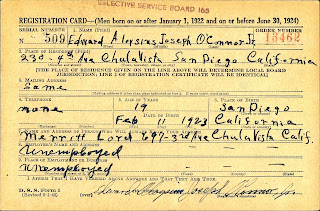 SELECTIVE SERVICE BOARD 165
REGISTRATION CARD—(Men born on or after January 1, 1922 and on or before June 30, 1924)
SERIAL NUMBER 1. NAME (Print) ORDER NUMBER
N 509 Edward Aloysius Joseph O'Connor Jr. 13462
2. PLACE OF RESIDENCE (Print)
230-4th Ave Chula Vista San Diego California
[THE PLACE OF RESIDENCE GIVEN ON THE LINE ABOVE WILL DETERMINE LOCAL BOARD
JURISDICTION; LINE 2 OF REGISTRATION CERTIFICATE WILL BE IDENTICAL]
3. MAILING ADDRESS
Same
4. TELEPHONE 5. AGE IN YEARS 6. PLACE OF BIRTH
none 19 San Diego
DATE OF BIRTH
Feb 11 1923 California
7. NAME AND ADDRESS OF PERSON WHO WILL ALWAYS KNOW YOUR ADDRESS
Merritt Lord 697-3rd Ave Chula Vista Calif.
8. EMPLOYER'S NAME AND ADDRESS
Unemployed
9. PLACE OF EMPLOYMENT OR BUSINESS
Unemployed
I AFFIRM THAT I HAVE VERIFIED ABOVE ANSWERS AND THAT THEY ARE TRUE.
D. S. S. Form 1
Edward Aloysius Joseph O'Connor Jr.